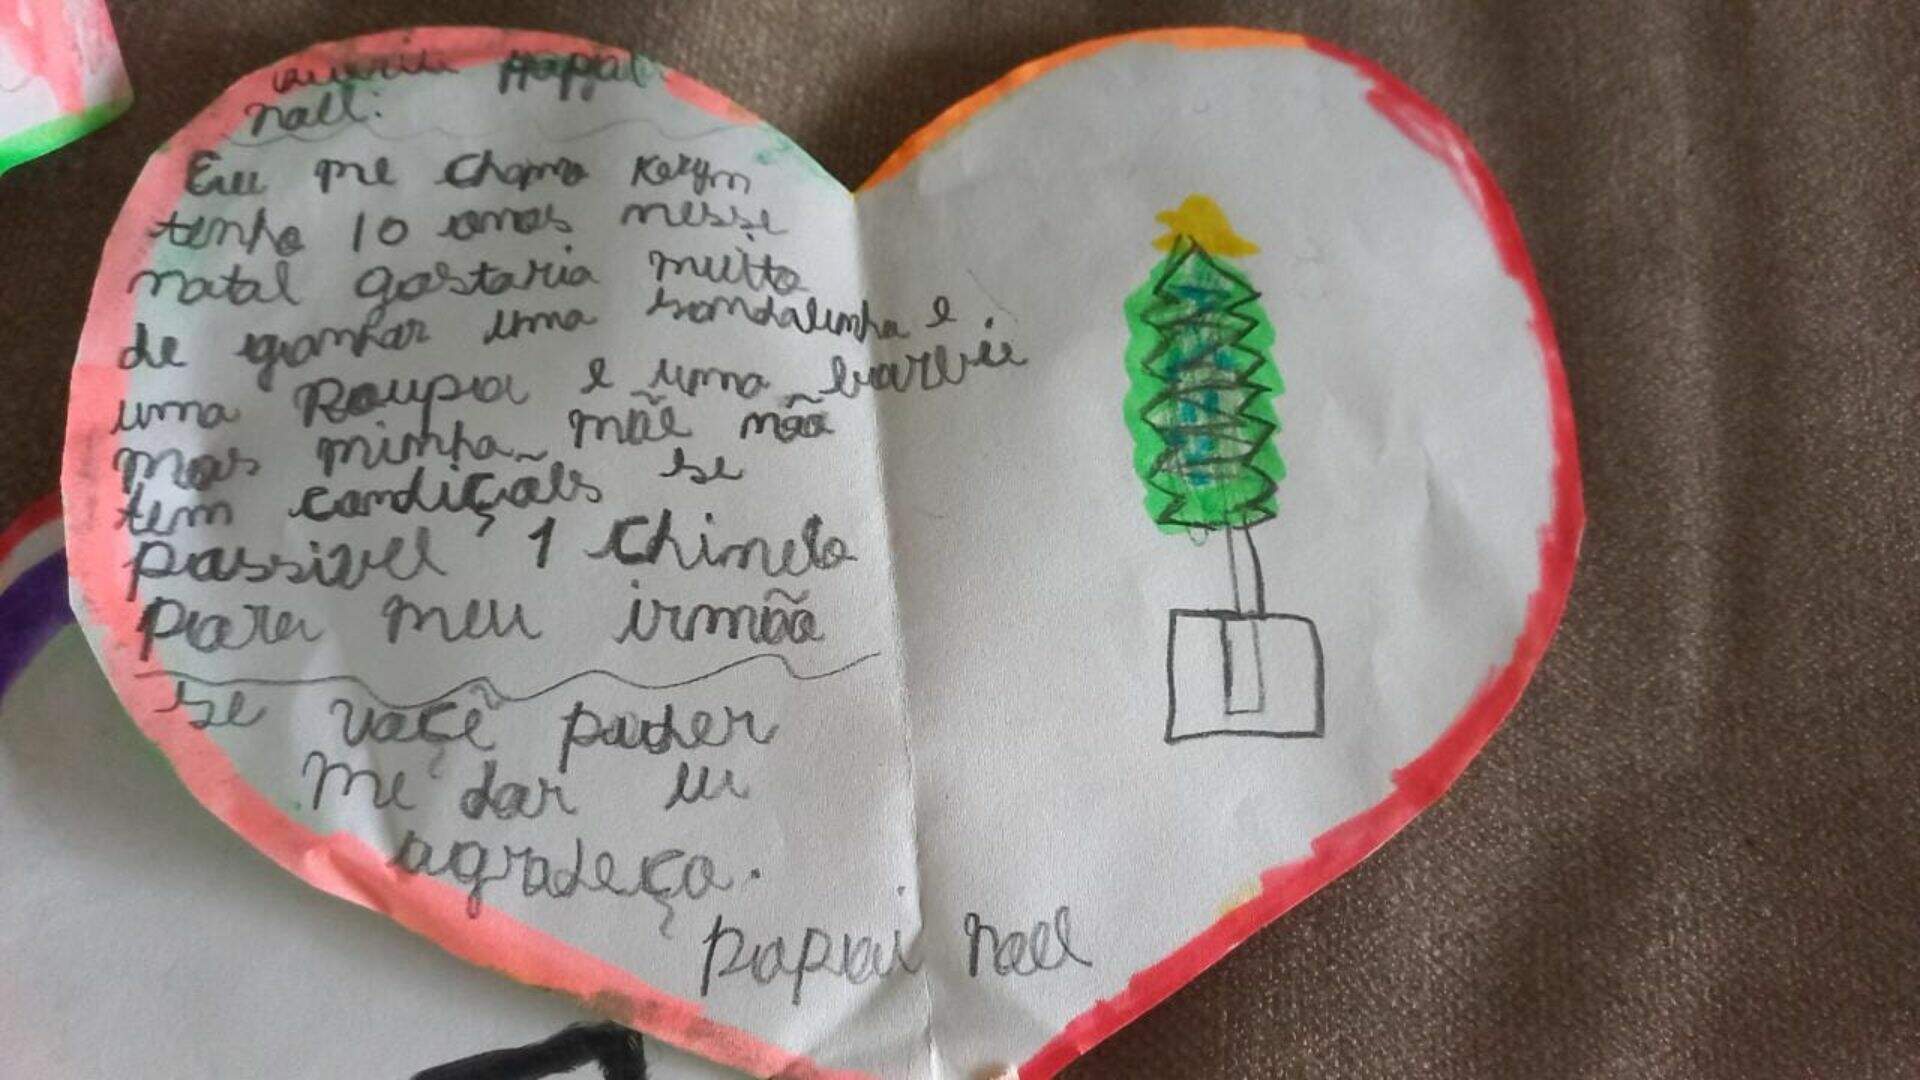 nall:
Eu me chamo Kerym
tenho 10 anos nesse
natal gostaria muito
de ganhar uma sandalinha e
uma Roupa e uma barbie
mas minha mãe não
tem condiçoẽs se
possivel 1 chinelo
para meu irmão
se voçê puder
me dar eu
agradeço.
papai noel